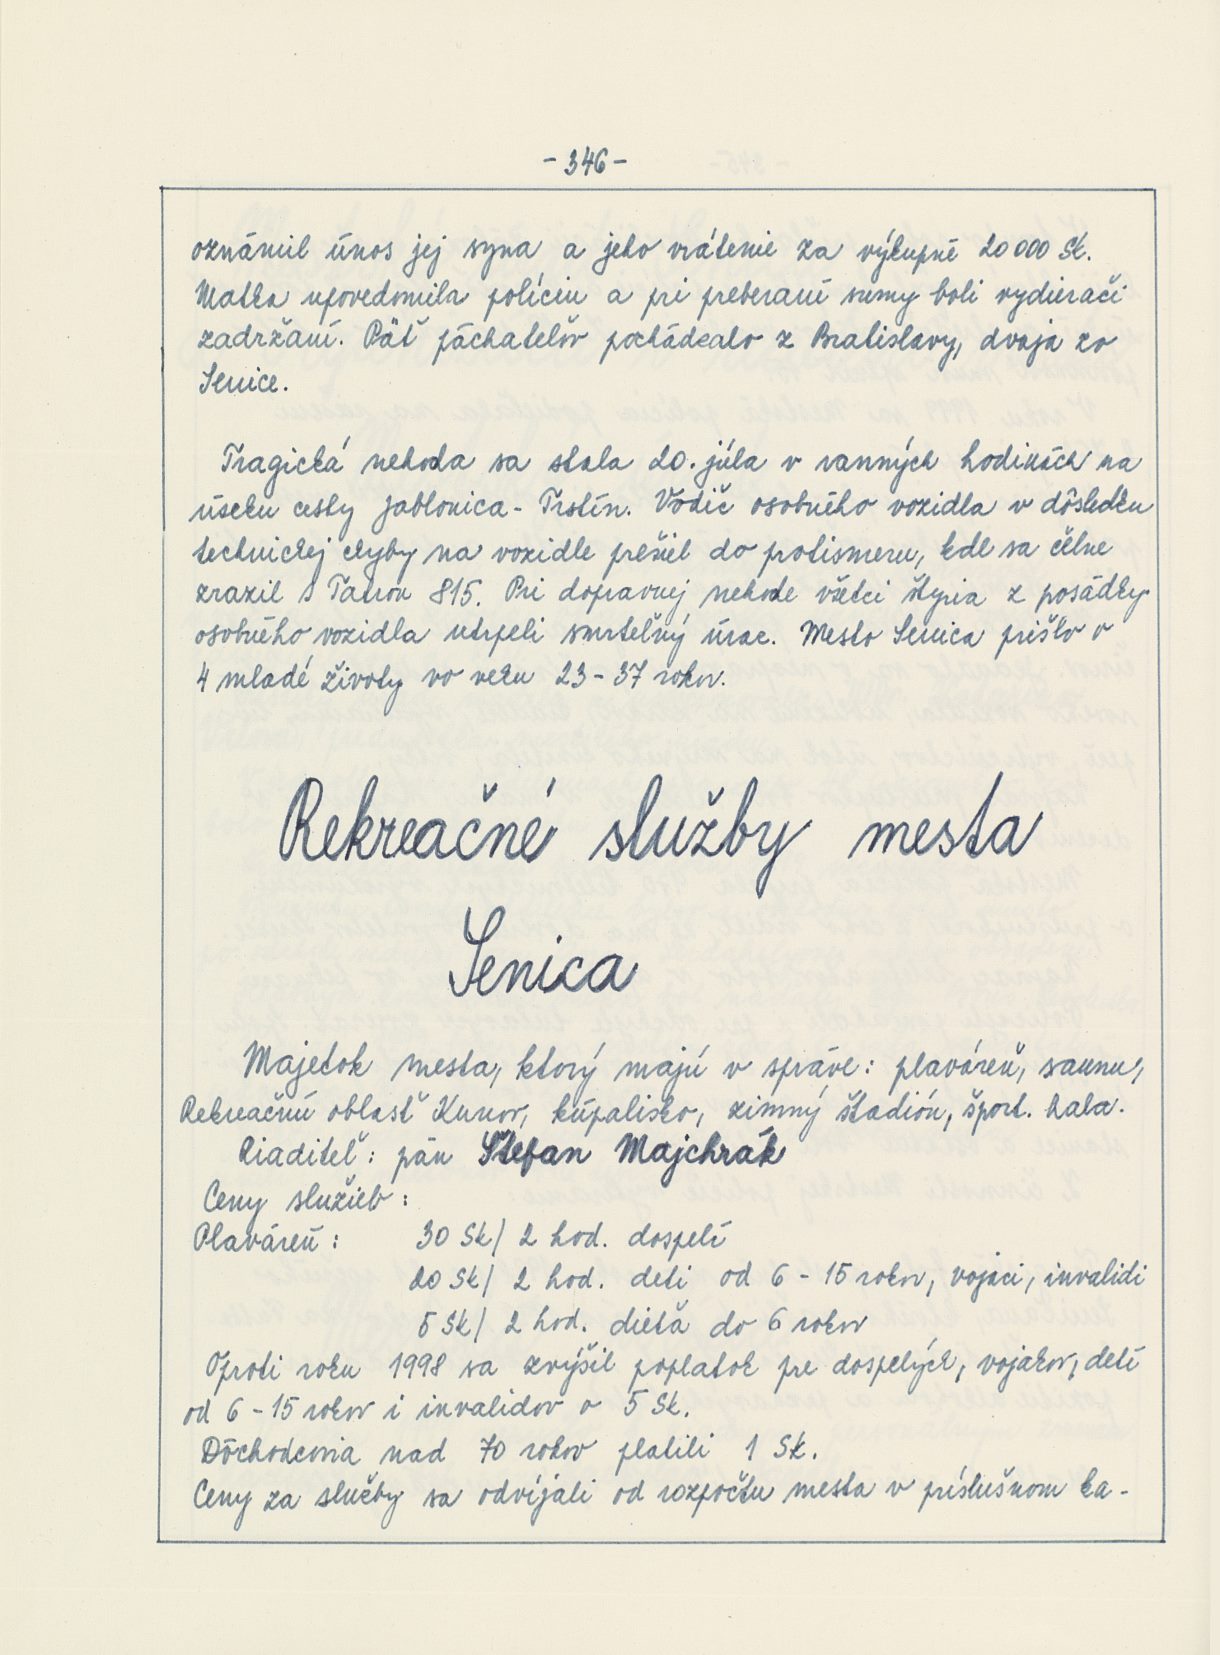 - 346 -
oznámil únos jej syna a jeho vrátenie za výkupné 20 000 Sk.
Matka upovedomila políciu a pri preberaní sumy boli vydierači
zadržaní. Päť páchateľov pochádzalo z Bratislavy, dvaja zo
Senice.
Tragická nehoda sa stala 20. júla v ranných hodinách na
úseku cesty Jablonica - Trstín. Vodič osobného vozidla v dôsledku
technickej chyby na vozidle prešiel do protismeru, kde sa čelne
zrazil s Tatrou 815. Pri dopravnej nehode všetci štyria z posádky
osobného vozidla utrpeli smrteľný úraz. Mesto Senica prišlo o
4 mladé životy vo veku 23 - 37 rokov.
Rekreačné služby mesta
Senica
Majetok mesta, ktorý majú v správe: plaváreň, saunu,
Rekreačnú oblasť Kunov, kúpalisko, zimný štadión, šport. hala.
Riaditeľ: pán Štefan Majchrák
Ceny služieb:
Plaváreň: 30 Sk/ 2 hod. dospelí
20 Sk/ 2 hod. deti od 6 - 15 rokov, vojaci, invalidi
5 Sk/ 2 hod. dieťa do 6 rokov
Oproti roku 1998 sa zvýšil poplatok pre dospelých, vojakov, detí
od 6 - 15 rokov i invalidov o 5 Sk.
Dôchodcovia nad 70 rokov platili 1 Sk.
Ceny za služby sa odvíjali od rozpočtu mesta v príslušnom ka-